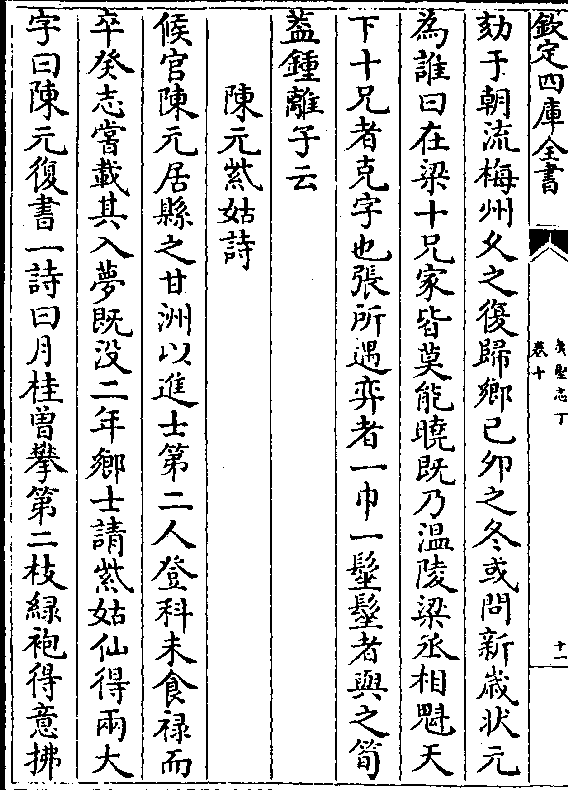 欽定四庫全書
夷堅志丁
卷十
十一
劾于朝流梅州久之復歸鄉已卯之冬或問新歲状元
為誰曰在梁十兄家皆莫能曉既乃温陵梁丞相魁天
下十兄者克字也張所遇弈者一巾一髽髽者與之筍
葢鍾離子云
陳元紫姑詩
候官陳元居縣之甘洲以進士第二人登科未食禄而
卒癸志嘗載其入夢既没二年鄉士請紫姑仙得兩大
字曰陳元復書一詩曰月桂曽攀第二枝緑袍得意拂